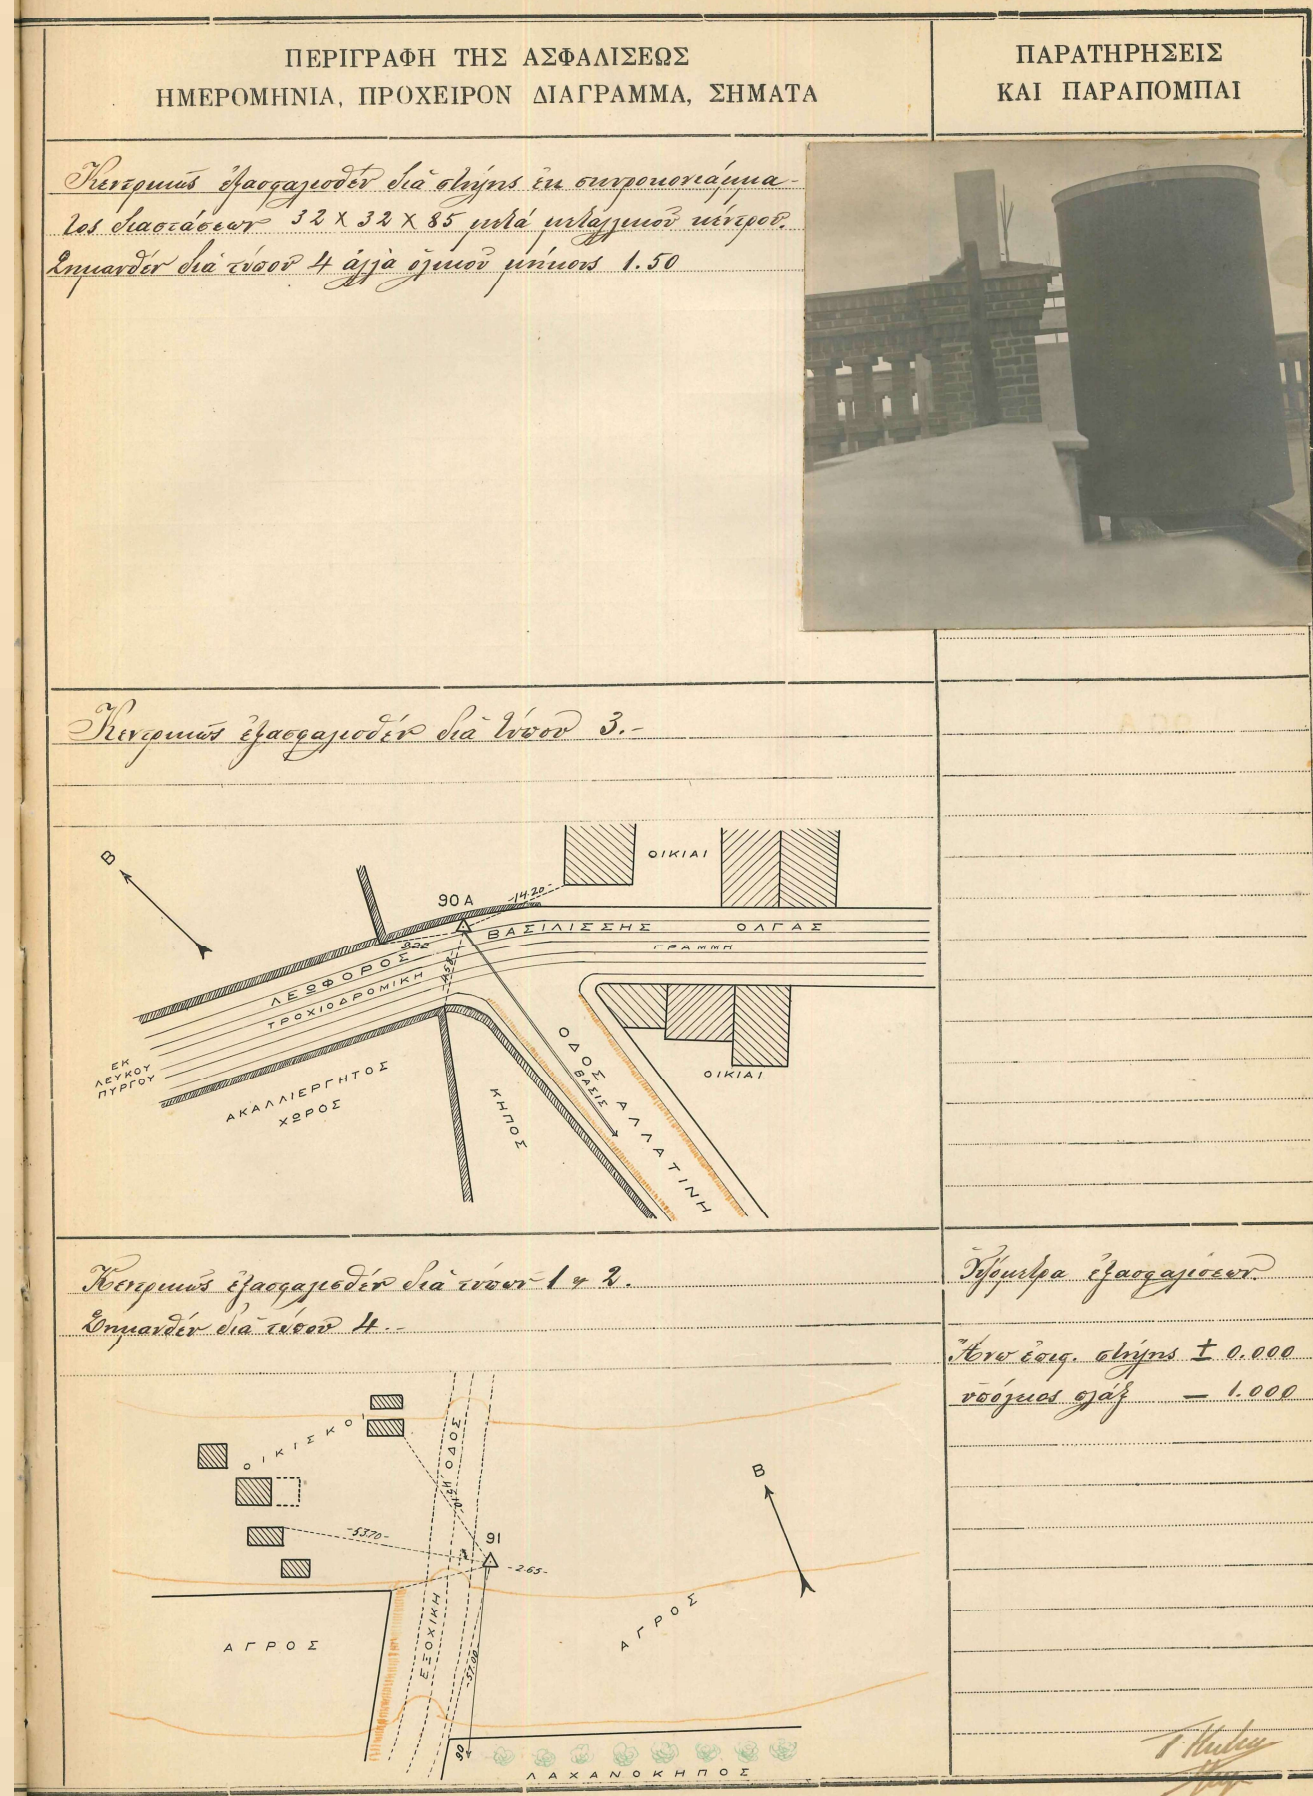 ΠΕΡΙΓΡΑΦΗ ΤΗΣ ΑΣΦΑΛΙΣΕΩΣ
ΗΜΕΡΟΜΗΝΙΑ, ΠΡΟΧΕΙΡΟΝ ΔΙΑΓΡΑΜΜΑ, ΣΗΜΑΤΑ
ΠΑΡΑΤΗΡΗΣΕΙΣ
ΚΑΙ ΠΑΡΑΠΟΜΠΑΙ
Κεντρικῶς ἐξασφαλισθέν διά στήλης ἐκ σκυροκονιάμμα-
τος διαστάσεων 32 Χ 32 Χ 85 μετά μεταλλικοῦ κέντρου.
Σημανθέν διά τύπου 4 ἀλλά ὁλικοῦ μήκους 1.50
Κεντρικῶς ἐξασφαλισθέν διά τύπου 3.-
Β
ΟΙΚΙΑΙ
90 Α
-14.20-
ΛΕΩΦΟΡΟΣ ΒΑΣΙΛΙΣΣΗΣ ΟΛΓΑΣ
ΤΡΟΧΙΟΔΡΟΜΙΚΗ ΓΡΑΜΜΗ
ΕΚ
ΛΕΥΚΟΥ
ΠΥΡΓΟΥ
ΑΚΑΛΛΙΕΡΓΗΤΟΣ
ΧΩΡΟΣ
ΚΗΠΟΣ
ΟΔΟΣ ΑΛΛΑΤΙΝΗ
ΒΑΣΙΣ
ΟΙΚΙΑΙ
Κεντρικῶς ἐξασφαλισθέν διά τύπων 1 & 2.
Σημανθέν διά τύπου 4.-
Ὑψόμετρα ἐξασφαλίσεων.
Ἄνω ἐπιφ. στήλης ± 0.000
ὑπόγειος πλάξ — 1.000
ΟΙΚΙΣΚΟΙ
ΕΞΟΧΙΚΗ ΟΔΟΣ
Β
-53.70-
91
-2.65-
ΑΓΡΟΣ
ΑΓΡΟΣ
-57.00-
90
ΛΑΧΑΝΟΚΗΠΟΣ